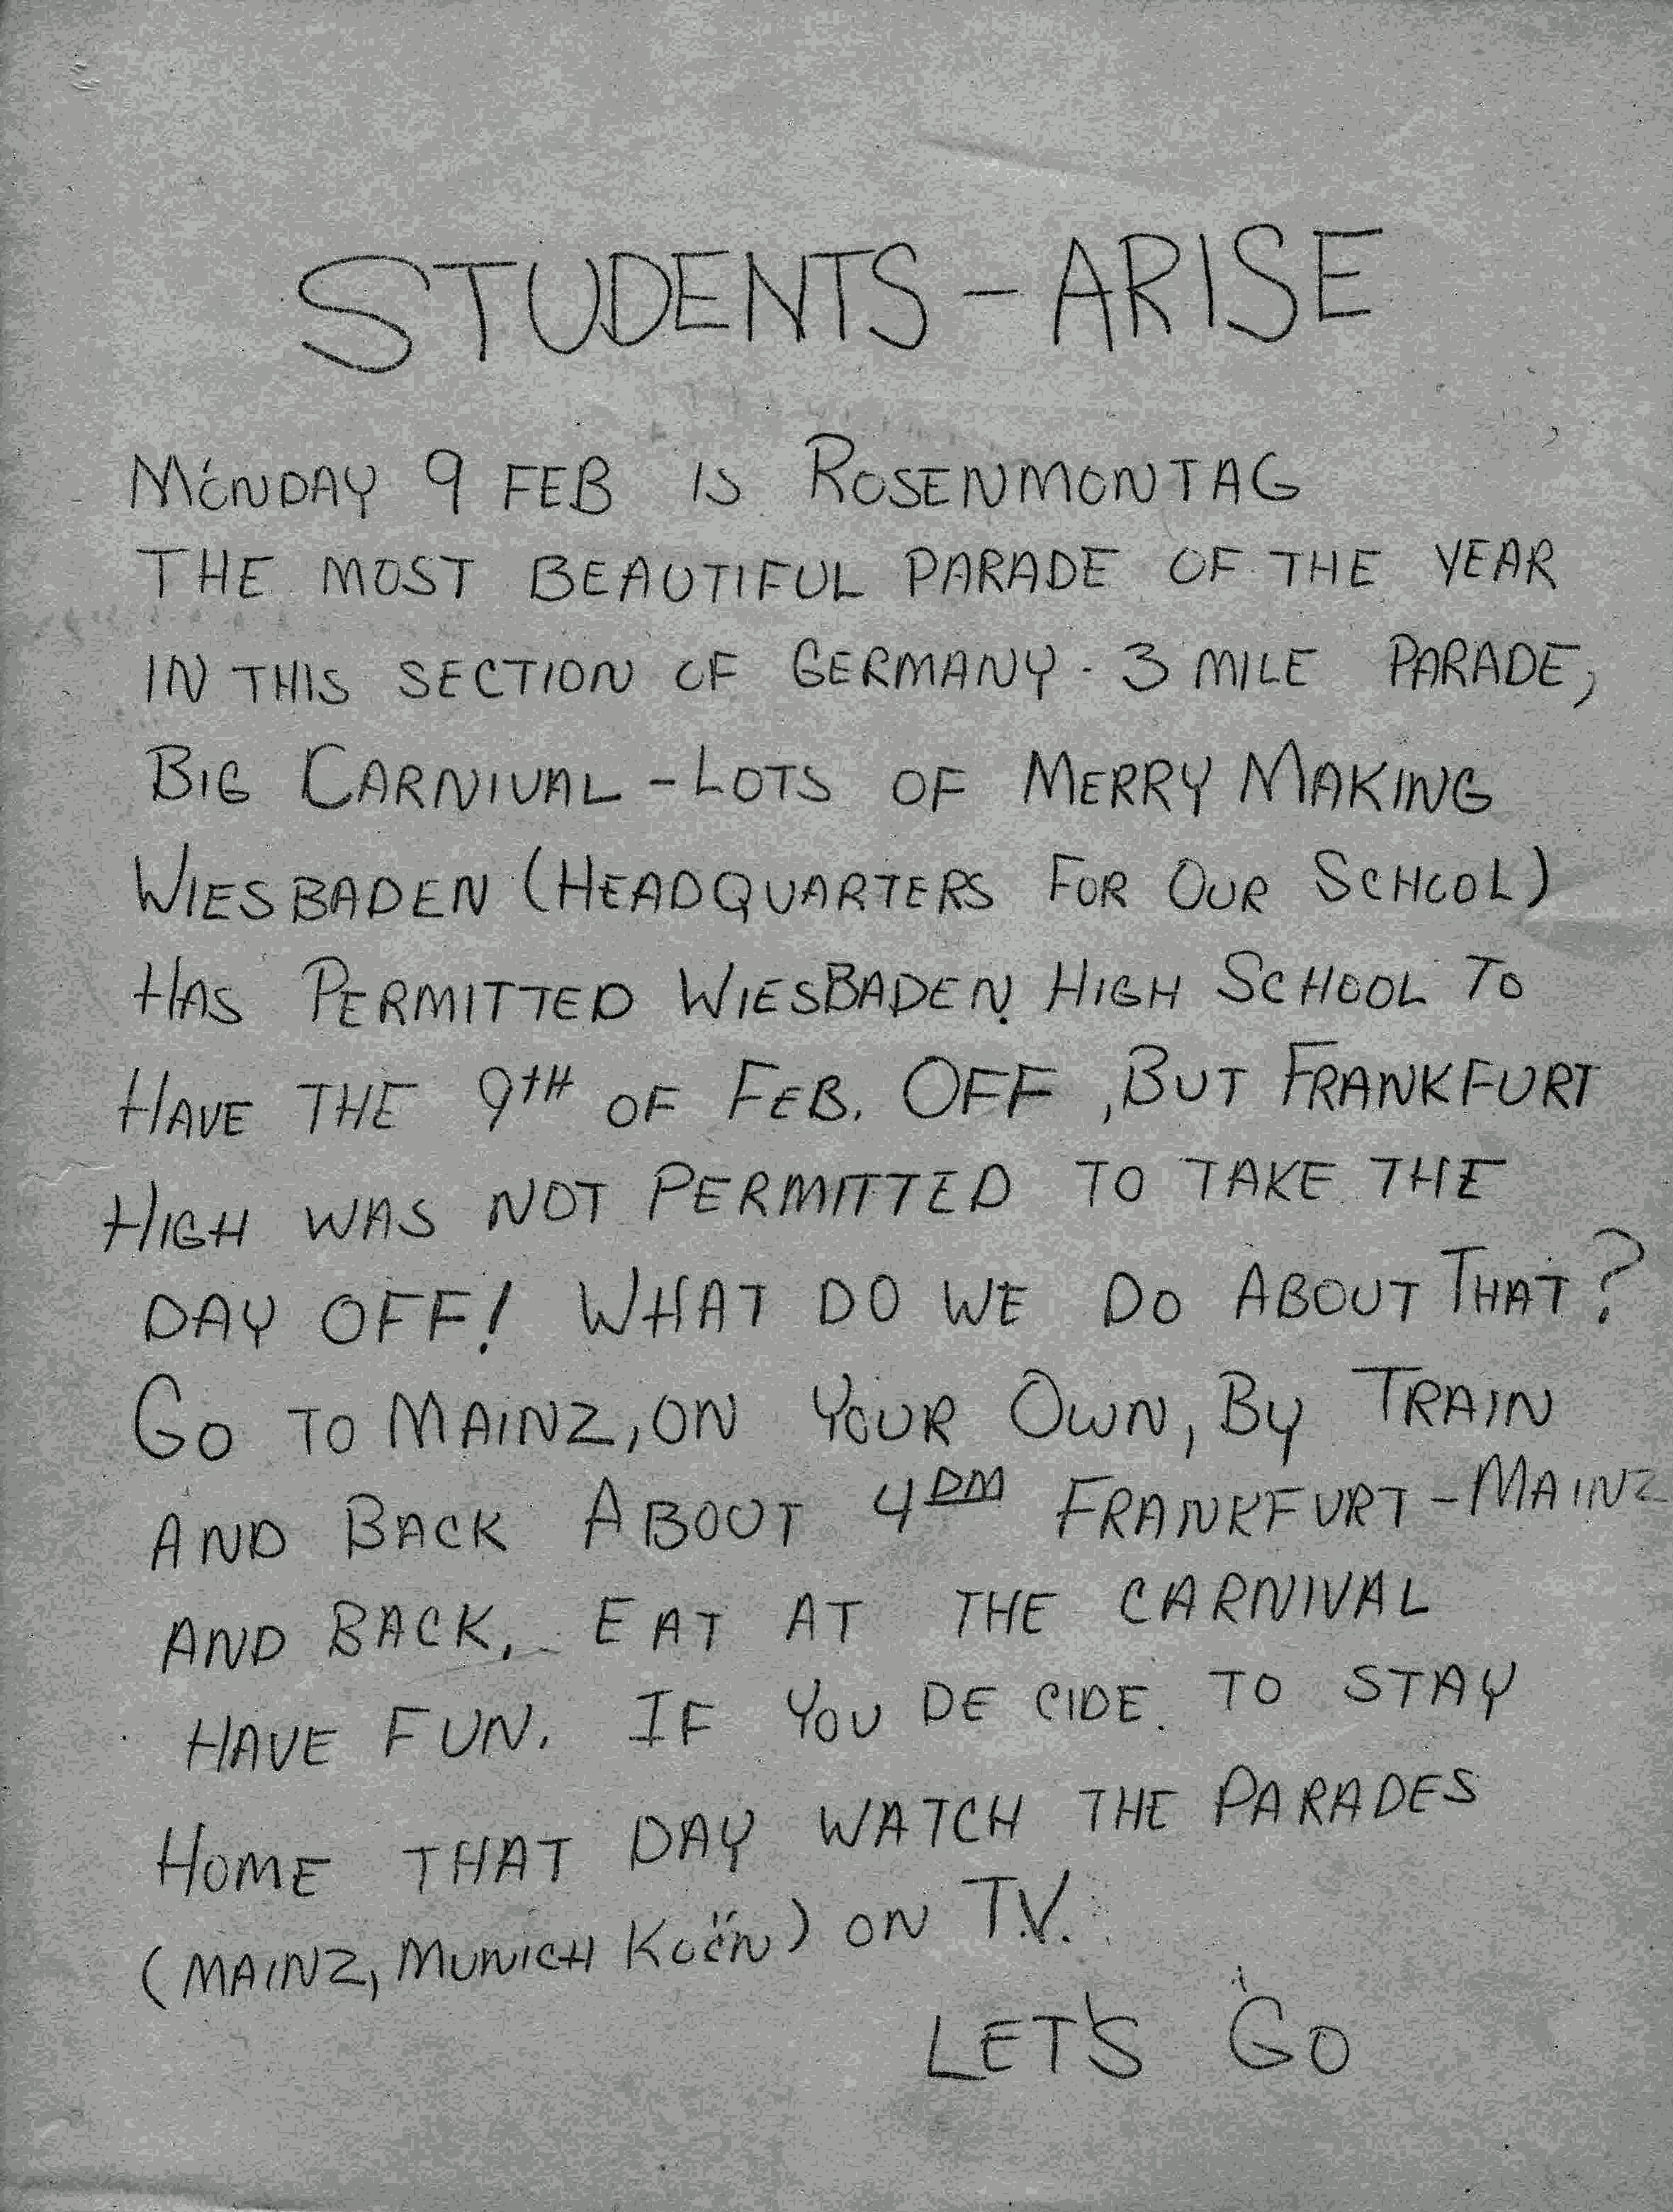 STUDENTS - ARISE
MONDAY 9 FEB IS ROSENMONTAG
THE MOST BEAUTIFUL PARADE OF THE YEAR
IN THIS SECTION OF GERMANY - 3 MILE PARADE,
BIG CARNIVAL - LOTS OF MERRY MAKING
WIESBADEN (HEADQUARTERS FOR OUR SCHOOL)
HAS PERMITTED WIESBADEN HIGH SCHOOL TO
HAVE THE 9TH OF FEB. OFF, BUT FRANKFURT
HIGH WAS NOT PERMITTED TO TAKE THE
DAY OFF! WHAT DO WE DO ABOUT THAT?
GO TO MAINZ, ON YOUR OWN, BY TRAIN
AND BACK ABOUT 4 DM FRANKFURT - MAINZ
AND BACK. EAT AT THE CARNIVAL
HAVE FUN. IF YOU DECIDE TO STAY
HOME THAT DAY WATCH THE PARADES
(MAINZ, MUNICH KOËN) ON T.V.
LET'S GO